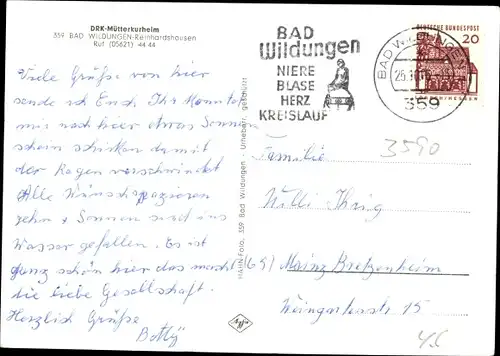 DRK-Mütterkurheim
359 BAD WILDUNGEN-Reinhardshausen
Ruf (05621) 44 44
Viele Grüße von hier
sende ich Euch Ihr
mir noch hier etwas Sonnen
schein schicken damit
der Regen verschwindet
Alle Wünsche
+ Sonnen sind ins
Wasser gefallen. Es ist
ganz schön hier das macht
die liebe Gesellschaft.
Herzlich Grüße
Betty
HAHN-Foto, 359 Bad Wildungen - Urheberr. geschützt
BAD
Wildungen
NIERE
BLASE
HERZ
KREISLAUF
BAD WILDUNGEN
359
DEUTSCHE BUNDESPOST
20
3590
Familie
Willi
(65) Mainz Bretzenheim
15
Agfa